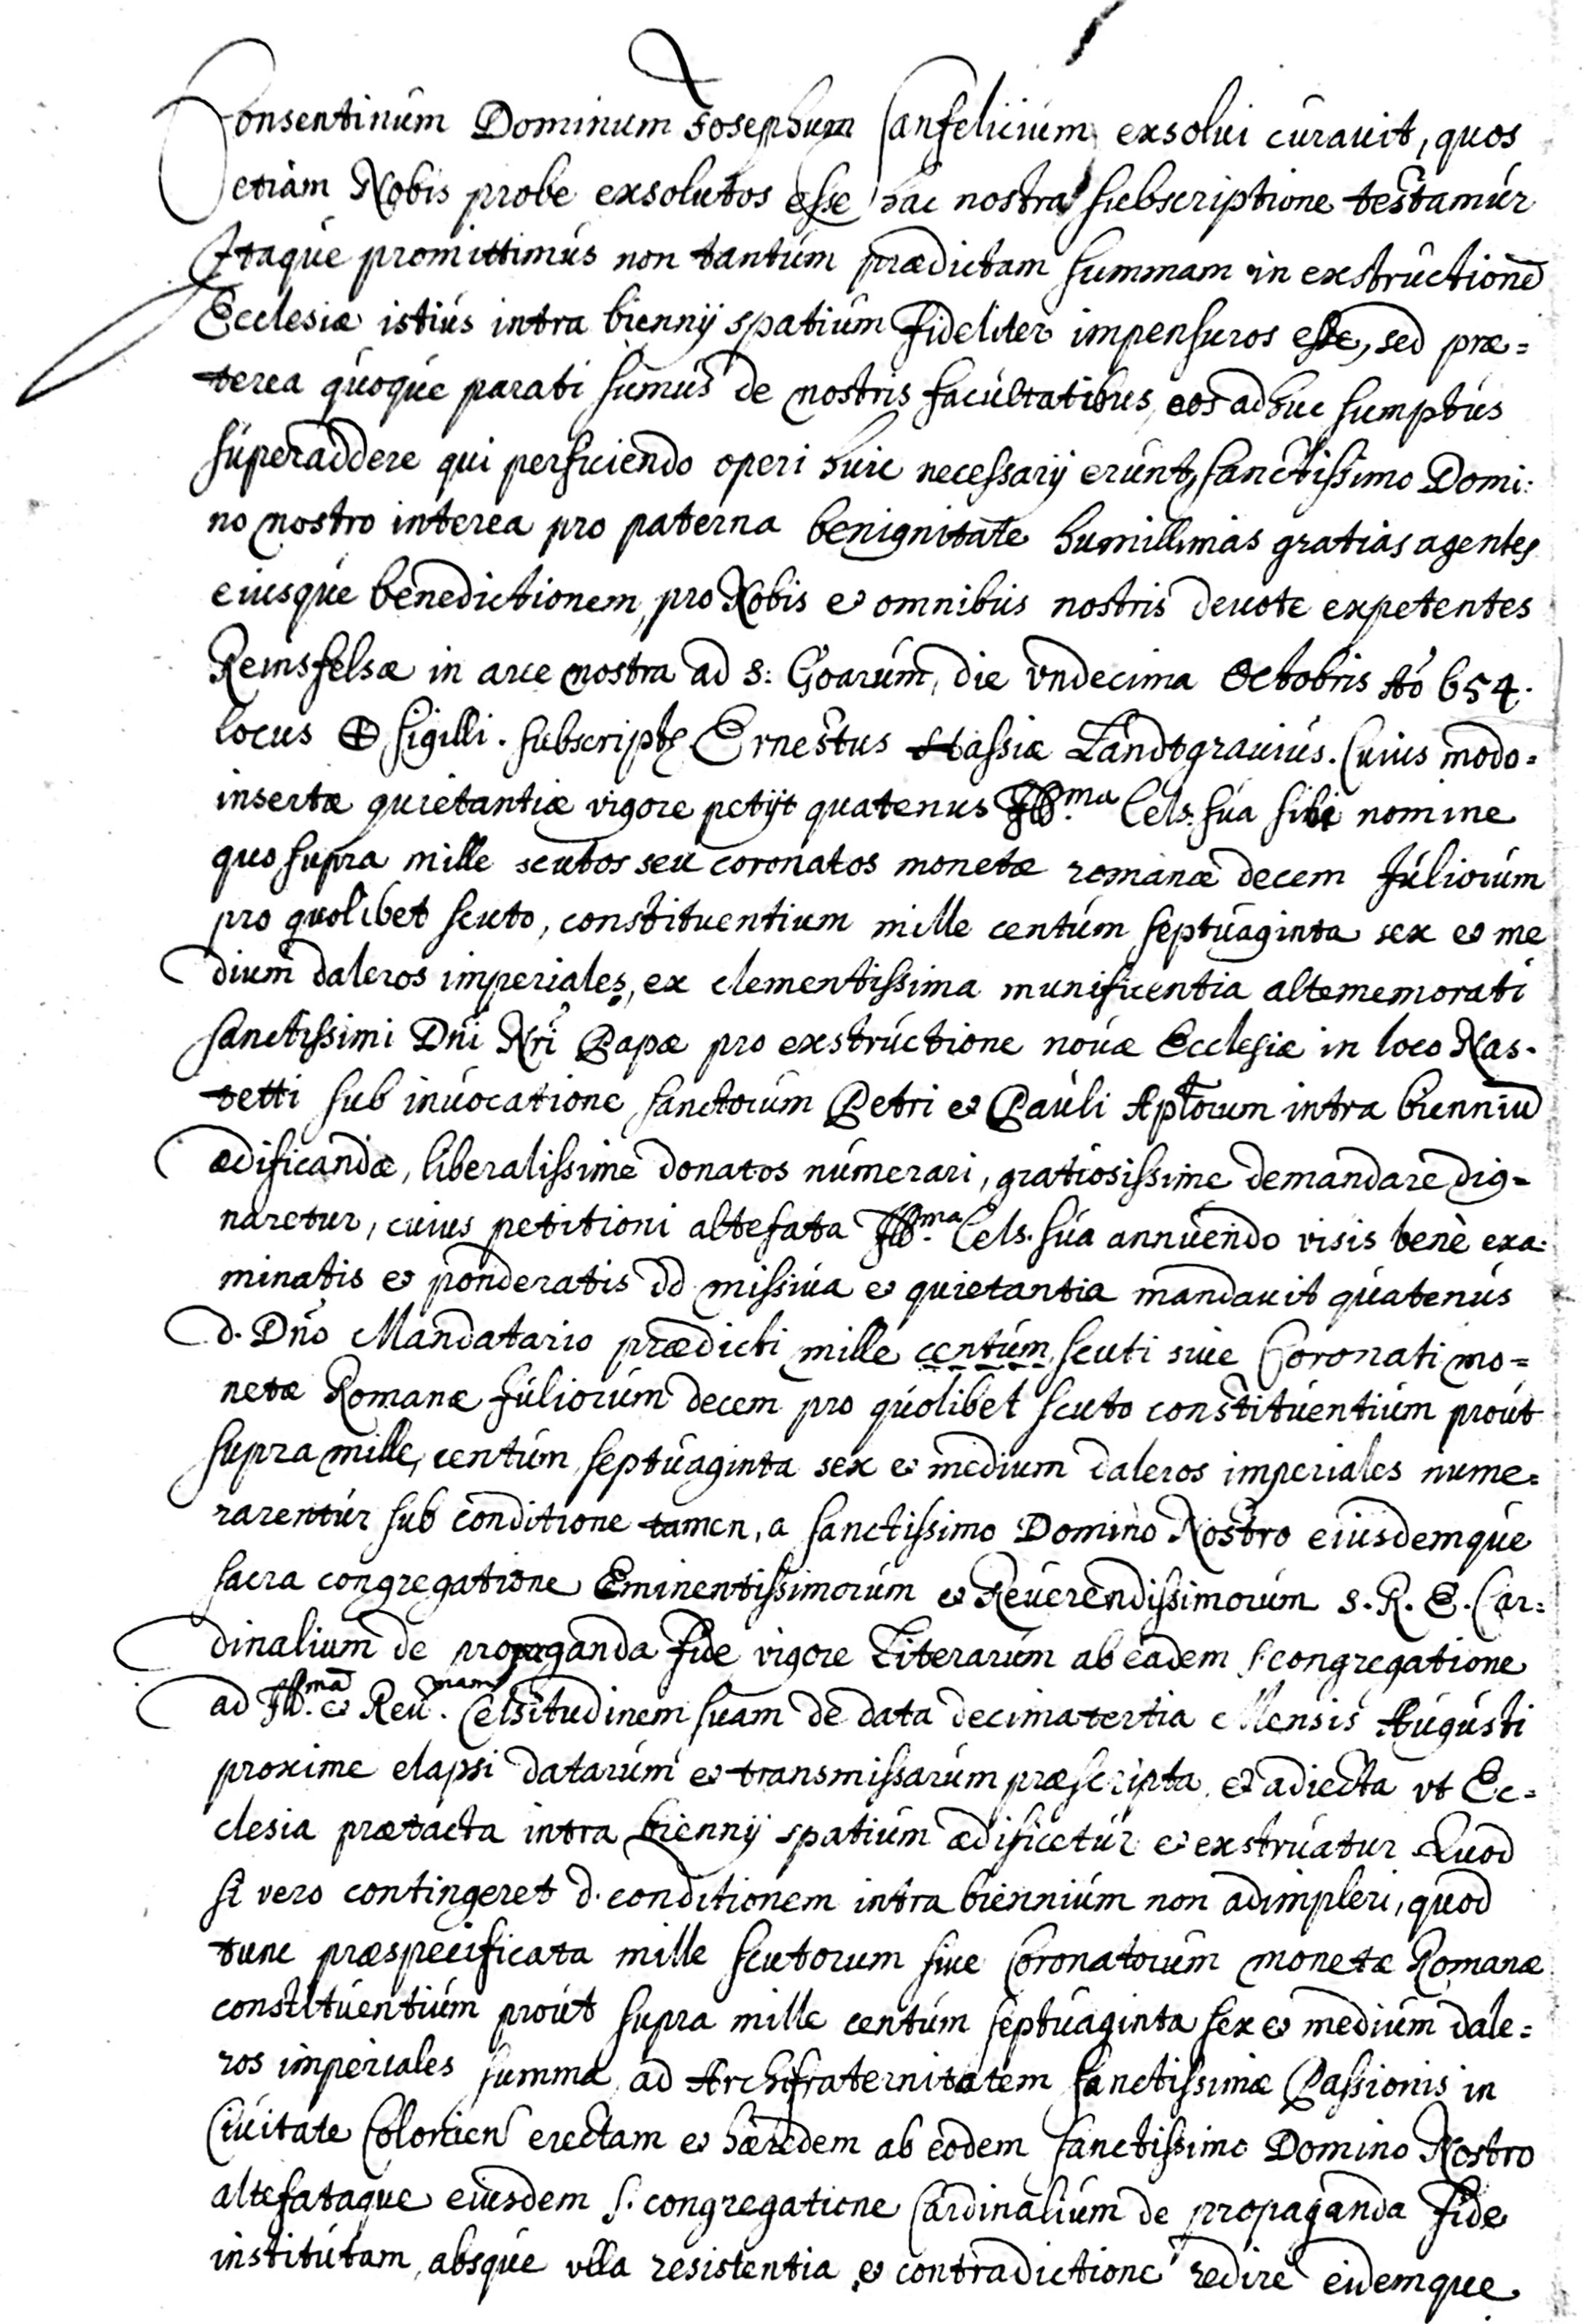 Consentinum Dominum Josephum Sanfelicium exsolui curauit, quos
etiam Nobis probe exsolutos esse hac nostra subscriptione testamur
Itaque promittimus non tantum prædictam summam in exstructione
Ecclesiæ istius intra biennij spatium fideliter impensuros esse, sed præ=
terea quoque parati sumus de nostris facultatibus, eos adhuc sumptus
superaddere qui perficiendo operi huic necessarij erunt, sanctissimo Domi:
no nostro interea pro paterna benignitate humillimas gratias agentes
eiusque benedictionem, pro Nobis et omnibus nostris deuote expetentes
Reinsfelsæ in arce nostra ad S: Goarum, die vndecima Octobris Aō 654.
locus ⊕ sigilli. subscript9 Ernestus Hassiæ Landtgrauius. Cuius modo=
insertæ quietantiæ vigore petijt quatenus Ill.ma Cels. sua sibi nomine
quo supra mille scutos seu coronatos monetæ romanæ decem Juliorum
pro quolibet scuto, constituentium mille centum septuaginta sex et me
dium daleros imperiales, ex clementissima munificentia altememorati
sanctissimi Dñi Nr̃i Papæ pro exstructione nouæ Ecclesiæ in loco Nas-
tetti sub inuocatione sanctorum Petri et Pauli Aptorum intra bienniū
ædificandæ, liberalissime donatos numerari, gratiosissime demandare dig=
naretur, cuius petitioni altefata Ill.ma Cels. sua annuendo visis benè exa:
minatis et ponderatis dd missiua et quietantia mandauit quatenus
d. Dño Mandatario prædicti mille centum scuti siue Coronati mo=
netæ Romanæ Juliorum decem pro quolibet scuto constituentium prout
supra mille, centum septuaginta sex et medium daleros imperiales nume=
rarentur sub conditione tamen, a sanctissimo Domino Nostro eiusdemque
sacra congregatione Eminentissimorum et Reuerendissimorum S. R. E. Car=
dinalium de propaganda fide vigore Literarum ab eadem s. congregatione
ad Ill.mā et Reu.mam Celsitudinem suam de data decimatertia Mensis Augusti
proxime elapsi datarum et transmissarum præscripta et adiecta vt Ec=
clesia prætacta intra biennij spatium ædificetur et exstruatur Quod
si vero contingeret d. conditionem intra biennium non adimpleri, quod
tunc præspecificata mille scutorum siue Coronatorum monetæ Romanæ
constituentium prout supra mille centum septuaginta sex et medium dale=
ros imperiales summa ad Archifraternitatem sanctissimæ Passionis in
Ciuitate Colonien erectam et hæredem ab eodem sanctissimo Domino Nostro
altefataque eiusdem s. congregatione Cardinalium de propaganda fide
institutam, absque vlla resistentia et contradictione redire eidemque